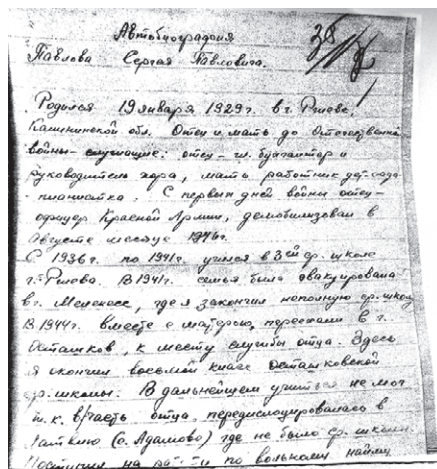 Автобиография
Павлова Сергея Павловича.
Родился 19 января 1929г. в г. Ржеве,
Калининской обл. Отец и мать до Отечественной
войны - служащие: отец - гл. бухгалтер и
руководитель хора, мать работник дет. сада
- пианистка. С первых дней войны отец -
офицер Красной Армии, демобилизован в
Августе месяце 1946г.
С 1936г. по 1941г. учился в 3ей ср. школе
г. Ржева. В 1941г. семья была эвакуирована
в г. Мелекесс, где я закончил неполную ср. школу
В 1944г. вместе с матерью, переехали в г.
Осташков, к месту службы отца. Здесь
я окончил восьмой класс Осташковской
ср. школы. В дальнейшем учиться не мог
т.к. в/часть отца передислоцировалась в
Латвию (о. Адамово) где не было ср. школы.
Поступил на по вольному найму